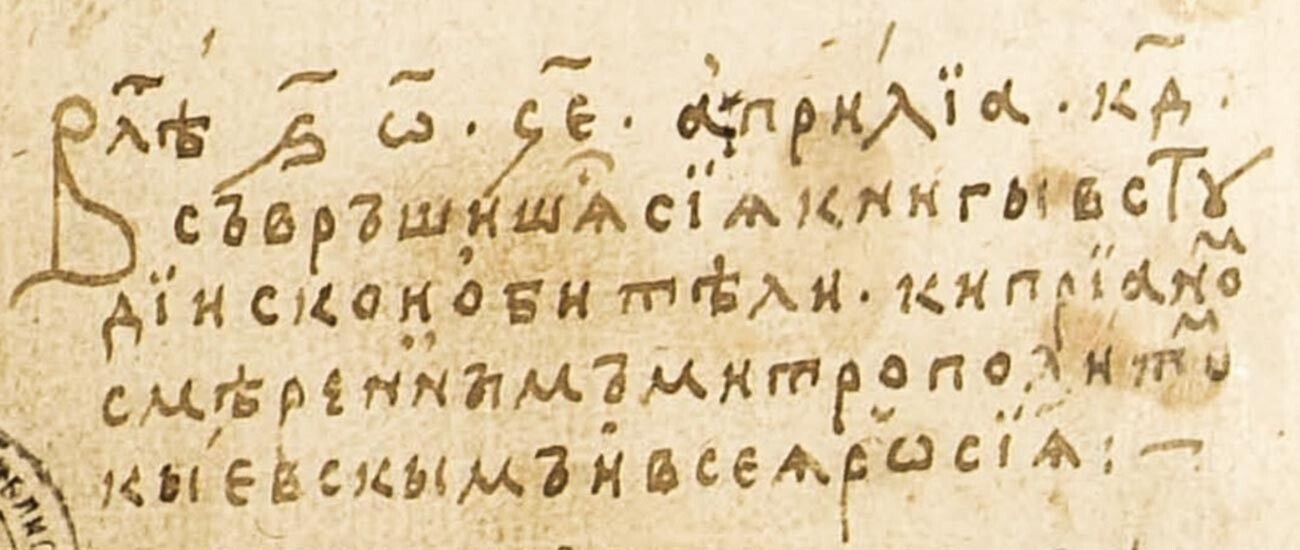 В лѣⷮ ҂ѕ҃ ѡ҃. ҂ч҃е. а҆прилїа. к҃д.
съвръшишѧ сїѧ книгы в стꙋ
дїискои ѻбитѣли. кипрїаноⷨ
смѣренныимъ митрополитоⷨ
кыевскымъ и҆ всеѧ рѡсїѧ :—